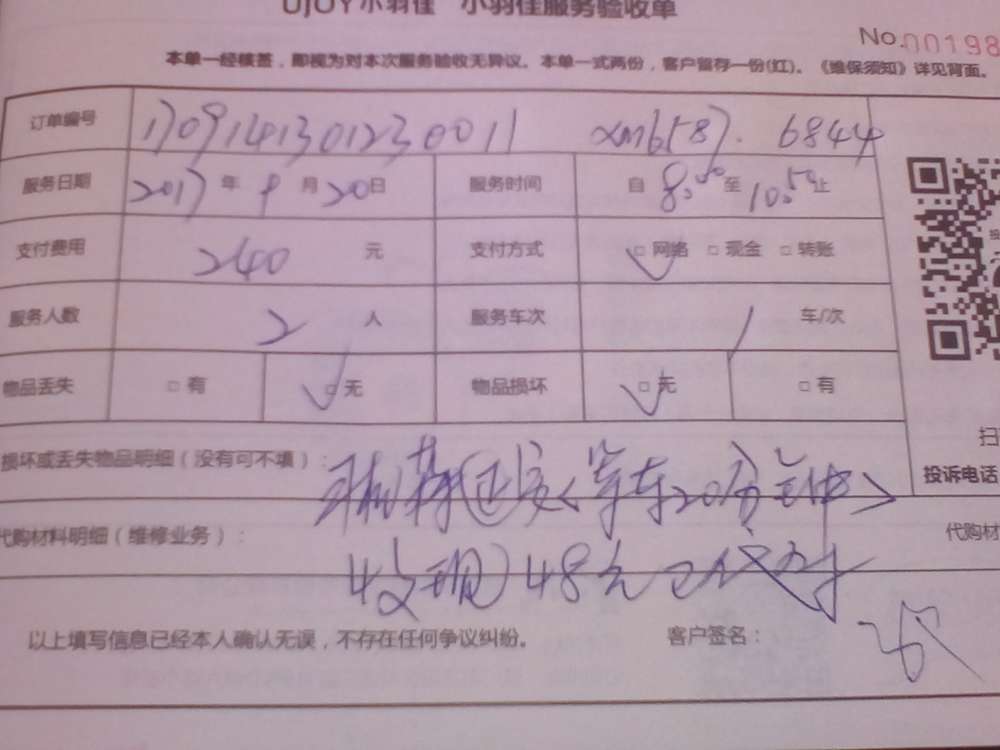 UJOY小羽佳 小羽佳服务验收单
No.00198
本单一经核签，即视为对本次服务验收无异议。本单一式两份，客户留存一份(红)。《维保须知》详见背面。
订单编号 1709141301230011 xm6587. 6844
服务日期 2017年9月20日 服务时间 自8:00至10:50止
支付费用 240元 支付方式 □网络 □现金 □转账
服务人数 2人 服务车次 1车/次
物品丢失 □有 □无 物品损坏 □无 □有
损坏或丢失物品明细（没有可不填）：
<等车20分钟>
扫
投诉电话
代购材料明细（维修业务）： 代购材
收现48元
以上填写信息已经本人确认无误，不存在任何争议纠纷。 客户签名：